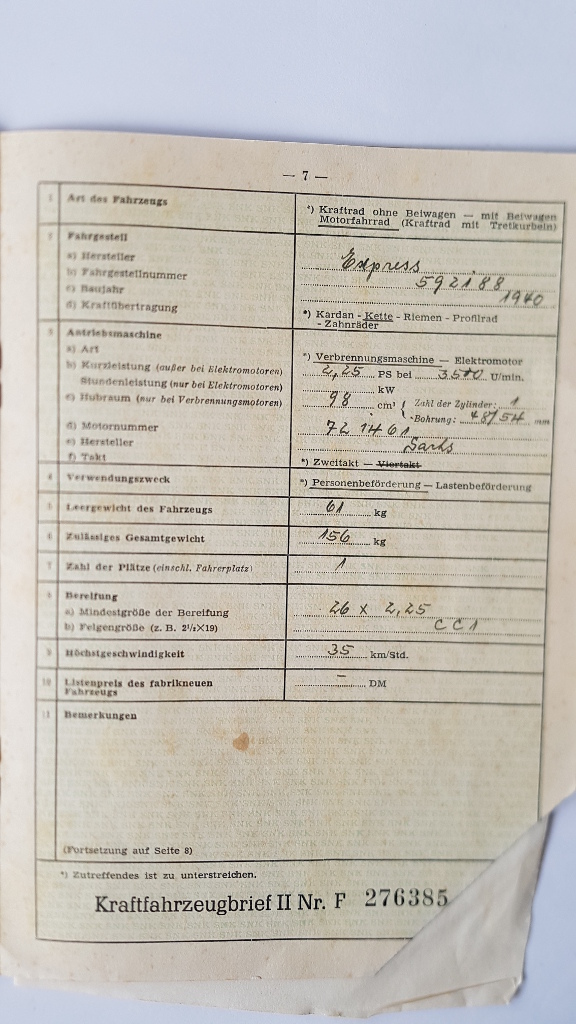 — 7 —
1 Art des Fahrzeugs
*) Kraftrad ohne Beiwagen — mit Beiwagen
Motorfahrrad (Kraftrad mit Tretkurbeln)
2 Fahrgestell
a) Hersteller Express
b) Fahrgestellnummer 592188
c) Baujahr 1940
d) Kraftübertragung *) Kardan - Kette - Riemen - Profilrad
- Zahnräder
3 Antriebsmaschine
a) Art *) Verbrennungsmaschine — Elektromotor
b) Kurzleistung (außer bei Elektromotoren) 2,25 PS bei 3500 U/min.
Stundenleistung (nur bei Elektromotoren) kW
c) Hubraum (nur bei Verbrennungsmotoren) 98 cm³ { Zahl der Zylinder: 1
Bohrung: 48/54 mm
d) Motornummer 721461
e) Hersteller Sachs
f) Takt *) Zweitakt — Viertakt
4 Verwendungszweck *) Personenbeförderung — Lastenbeförderung
5 Leergewicht des Fahrzeugs 61 kg
6 Zulässiges Gesamtgewicht 156 kg
7 Zahl der Plätze (einschl. Fahrerplatz) 1
8 Bereifung
a) Mindestgröße der Bereifung 26 x 2,25
b) Felgengröße (z. B. 2½×19) CC1
9 Höchstgeschwindigkeit 35 km/Std.
10 Listenpreis des fabrikneuen
Fahrzeugs – DM
11 Bemerkungen
(Fortsetzung auf Seite 8)
*) Zutreffendes ist zu unterstreichen.
Kraftfahrzeugbrief II Nr. F 276385